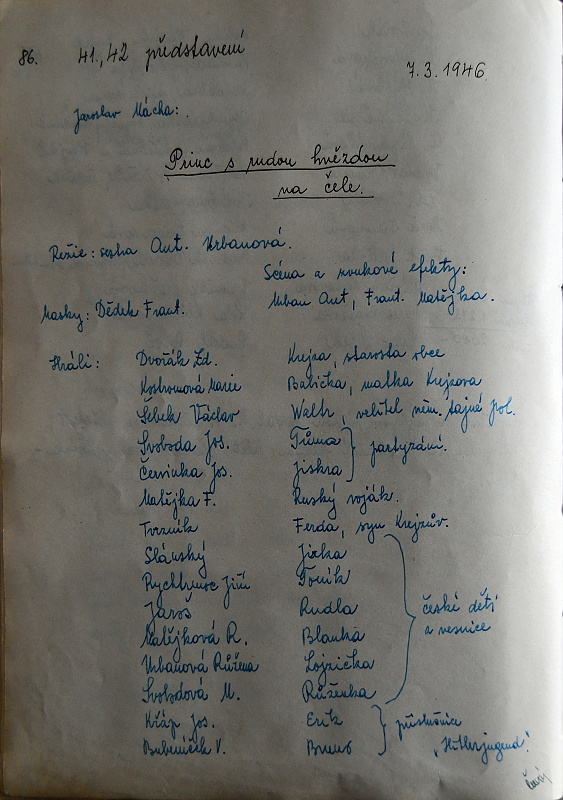 86. 41., 42 představení
7.3.1946.
Jaroslav Mácha:
Princ s rudou hvězdou
na čele.
Režie: sestra Ant. Urbanová.
Scéna a zvukové efekty:
Masky: Dědek Frant. Urban Ant, Frant. Matějka.
Hráli: Dvořák Zd. Krejza, starosta obce
Kostromová Marie Babička, matka Krejzova
Šebek Václav Walth, velitel něm. tajné pol.
Svoboda Jos. Tůma
partyzáni.
Červinka Jos. Jiskra
Matějka F. Ruský voják.
Tvrzník Ferda, syn Krejzův.
Slánský Jirka
Rychtrmoc Jiří Toník
Jaroš Rudla české děti
Matějková R. Blanka z vesnice
Urbanová Růžena Lojzička
Svobodová M. Růženka
Křáp Jos. Erik příslušníci
Bubeníček V. Bruno „Hitlerjugend!"